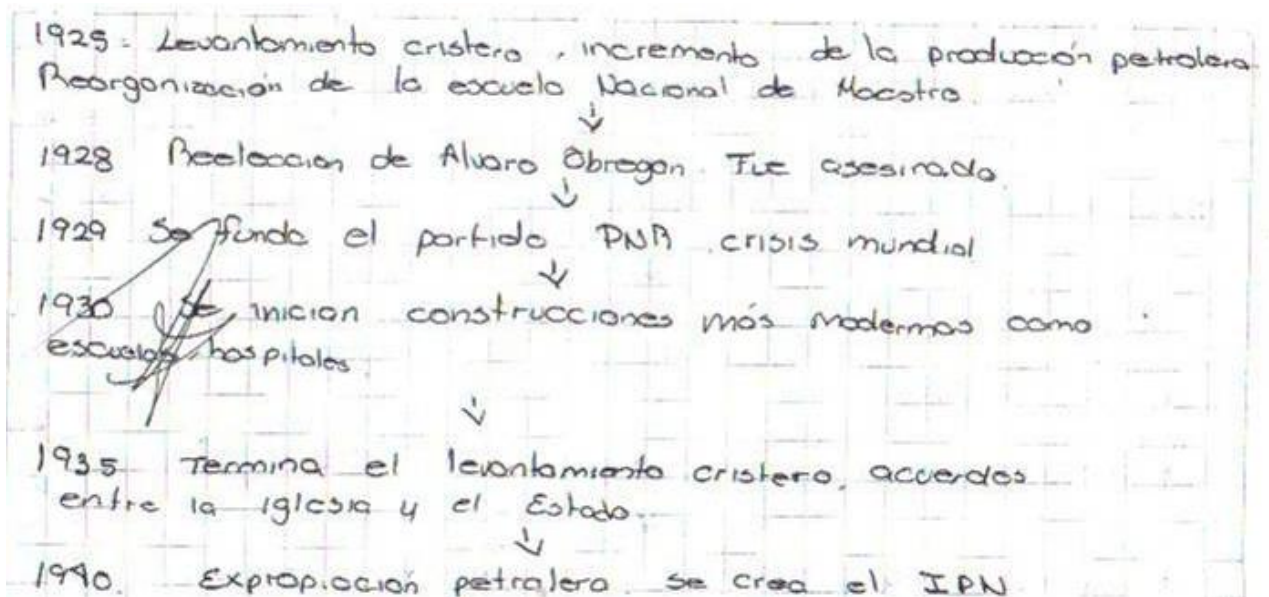 1925. Levantamiento cristero, incremento de la producción petrolera.
Reorganización de la escuela Nacional de Maestro.
1928 Reeleccion de Alvaro Obregon. Fue asesinado.
1929 Se funda el partido PNR crisis mundial
1930 Se inician construcciones más modernas como
escuelas, hospitales.
1935 Termina el levantamiento cristero, acuerdos
entre la iglesia y el Estado.
1940. Expropiación petrolera. se crea el IPN